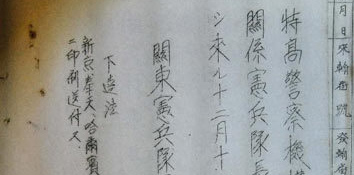 月日 來翰番號 發翰省
特高警察機構
關係憲兵隊長
シ來ル十二月十一
關東憲兵隊
下達法
新京、奉天、哈爾賓
ニ印刷送付ス